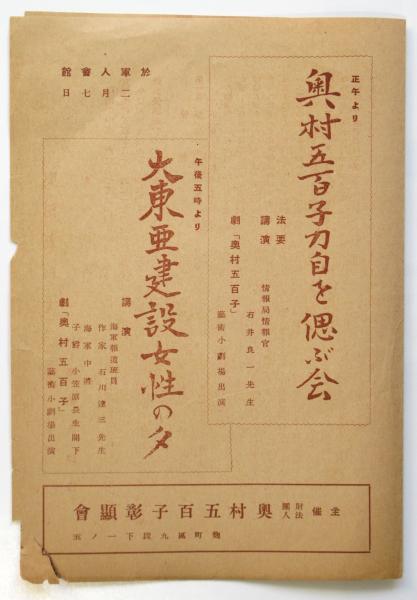 正午より
奥村五百子刀自を偲ぶ会
法要
講演 情報局情報官
石井良一先生
劇「奥村五百子」
藝術小劇場出演
於軍人會館
二月七日
午後五時より
大東亜建設女性の夕
講演
海軍報道班員
作家 石川達三先生
海軍中將
子爵 小笠原長生閣下
劇「奥村五百子」
藝術小劇場出演
主催 財團法人 奥村五百子彰顯會
麹町區九段下一ノ五